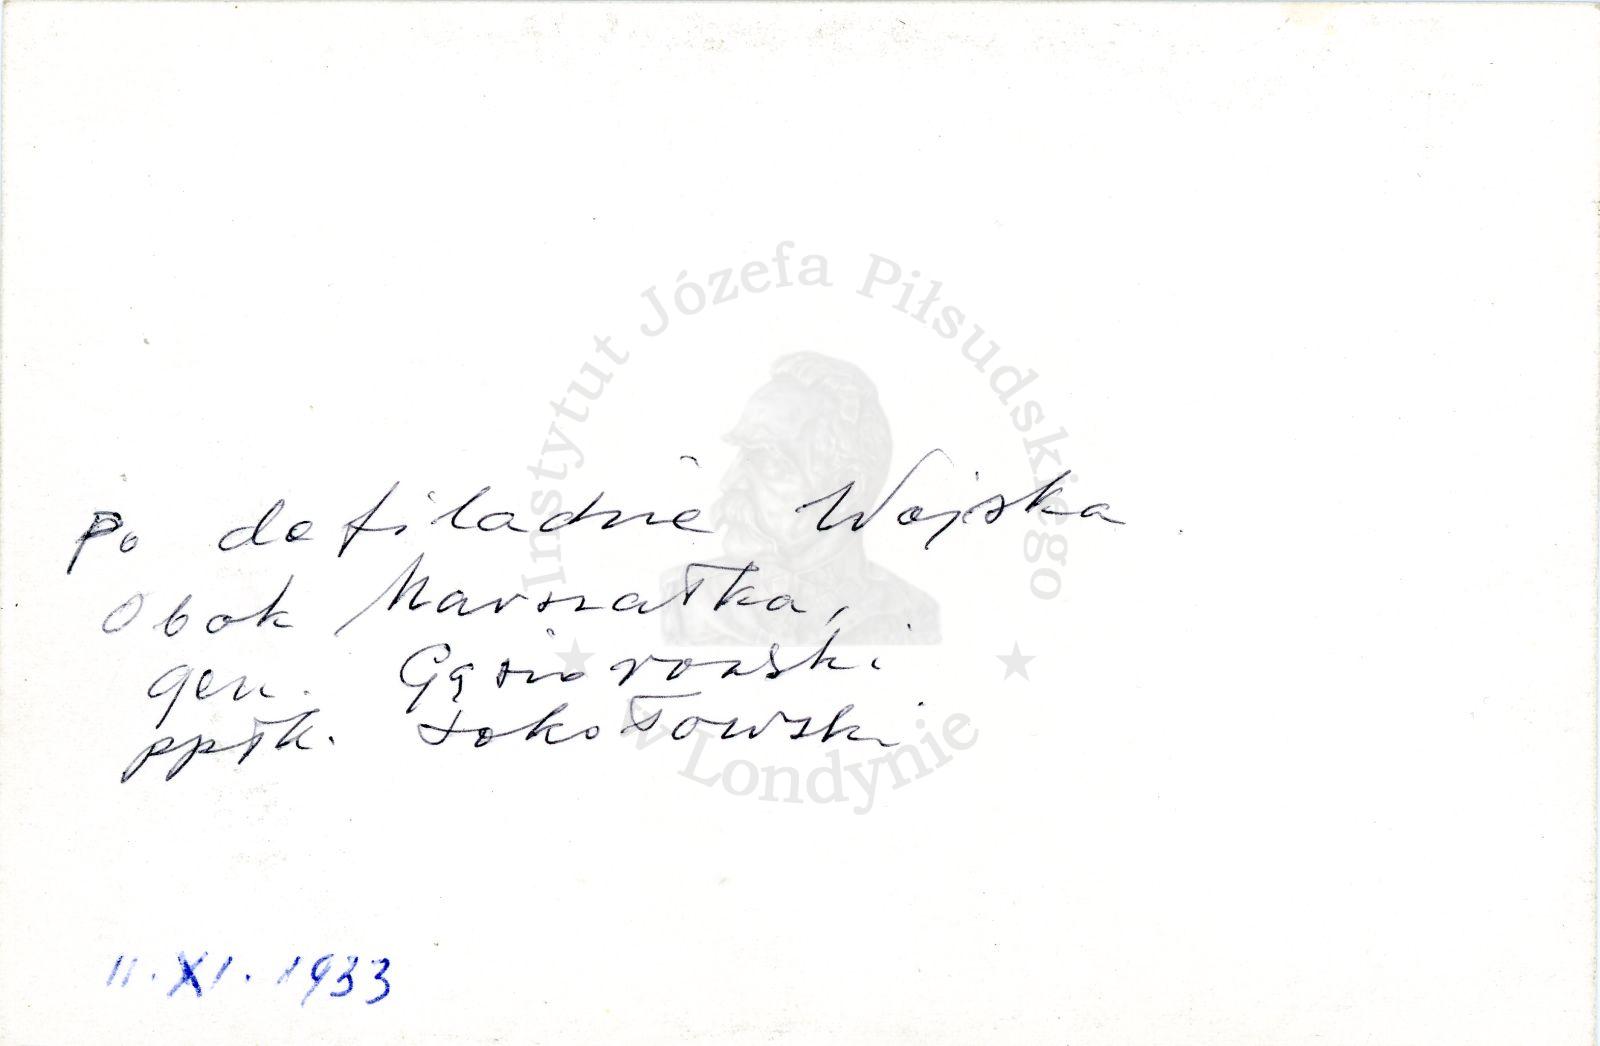 Instytut Józefa Piłsudskiego
w Londynie
Po defiladzie Wojska.
Obok Marszałka,
gen. Gąsiorowski
ppłk. Sokołowski
11.XI.1933